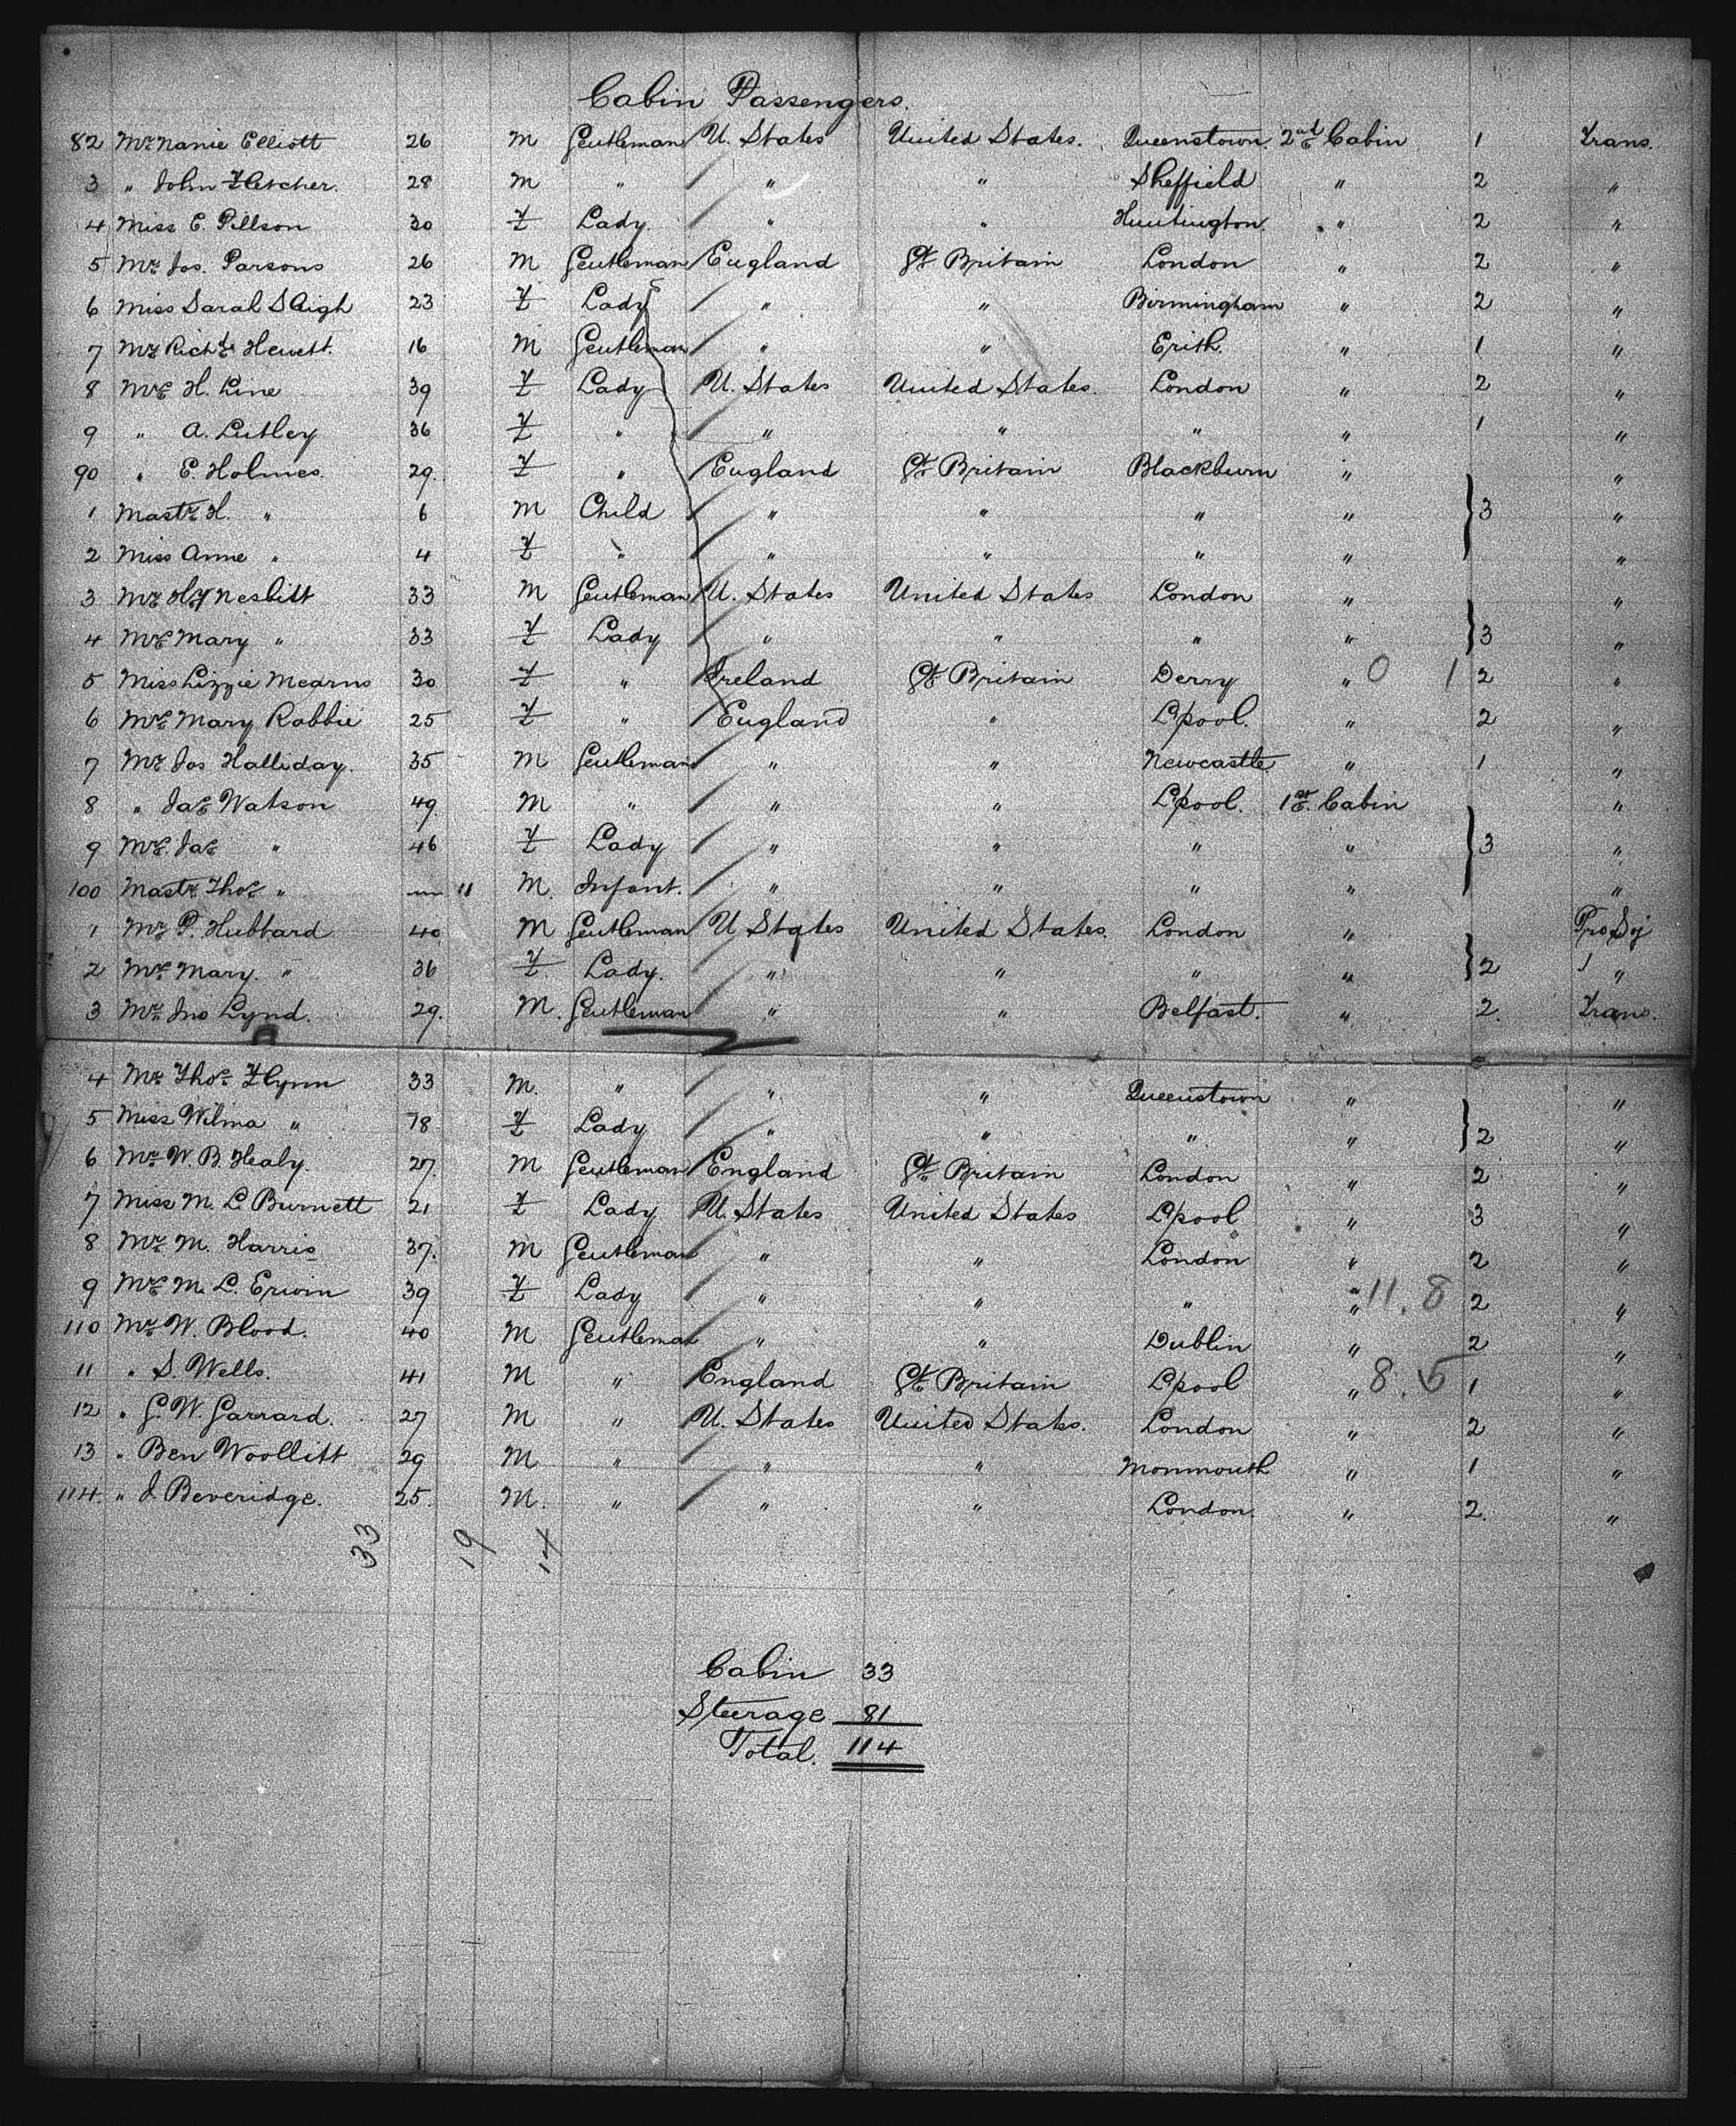 Cabin Passengers.
82 Mr Nanie Elliott 26 M Gentleman U. States United States. Queenstown. 2nd Cabin 1 Trans.
3 " John Fletcher. 28 M " " " Sheffield " 2 "
4 Miss E. Pillson 30 F Lady. " " Huntington. " 2 "
5 Mr Jos. Parsons 26 M Gentleman England Gt Britain London " 2 "
6 Miss Sarah Sleigh 23 F Lady " " Birmingham " 2 "
7 Mr Richd Hewett. 16 M Gentleman " " Erith. " 1 "
8 Mrs H. Line 39 F Lady U. States United States. London " 2 "
9 " A. Lutley 36 F " " " " " 1 "
90 " E. Holmes. 29. F " England Gt Britain Blackburn " "
1 Mastr H. " 6 M Child " " " " 3 "
2 Miss Anne " 4 F " " " " " "
3 Mr Hy Nesbitt 33 M Gentleman U. States United States London " "
4 Mrs Mary " 33 F Lady " " " " 3 "
5 Miss Lizzie Mearns 30 F " Ireland Gt Britain Derry " 0 1 2 "
6 Mrs Mary Robbie 25 F " England " Lpool. " 2 "
7 Mr Jos Halliday. 35 M Gentleman " " Newcastle " 1 "
8 " Jas Watson 49. M " " " Lpool. 1st Cabin "
9 Mrs. Jas " 46 F Lady " " " " 3 "
100 Mastr Thos " 11 M. Infant. " " " " "
1 Mr P. Hubbard 40 M Gentleman U States United States. London " Pro Soj
2 Mrs Mary. " 36 F. Lady. " " " " 2 "
3 Mr Jno Lynd. 29. M. Gentleman " " Belfast. " 2. Trans.
4 Mr Thos Flynn 33 M. " " " Queenstown " "
5 Miss Wilma " 18 F Lady " " " " 2 "
6 Mr W. B. Healy. 27. M Gentleman England Gt Britain London " 2 "
7 Miss M. L. Burnett 21 F Lady U. States United States Lpool " 3 "
8 Mr M. Harris 37. M Gentleman " " London " 2 "
9 Mrs M. L. Erwin 39 F Lady " " " " 11. 8 2 "
110 Mr W. Blood. 40 M Gentleman " " Dublin " 2 "
11 " S. Wells. 41 M " England Gt Britain Lpool " 8. 5 1 "
12 " G. W. Garrard. 27 M " U. States United States. London " 2 "
13 " Ben Woollitt 29 M " " " Monmouth " 1 "
114. " J. Beveridge. 25. M. " " " London. " 2. "
33 19 14
Cabin 33
Steerage 81
Total. 114